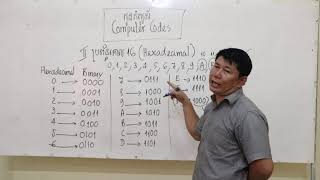 Computer Codes
16 (Hexadzamal)
0,1,2,3,4,5,6,7,8,9,A
Hexadzamal Binary
0 → 0000
1 → 0001
2 → 0010
3 → 0011
4 → 0100
5 → 0101
6 → 0110
7 → 0111
8 → 1000
9 → 1001
A → 1010
B → 1011
C → 1100
D → 1101
E 1110
1111